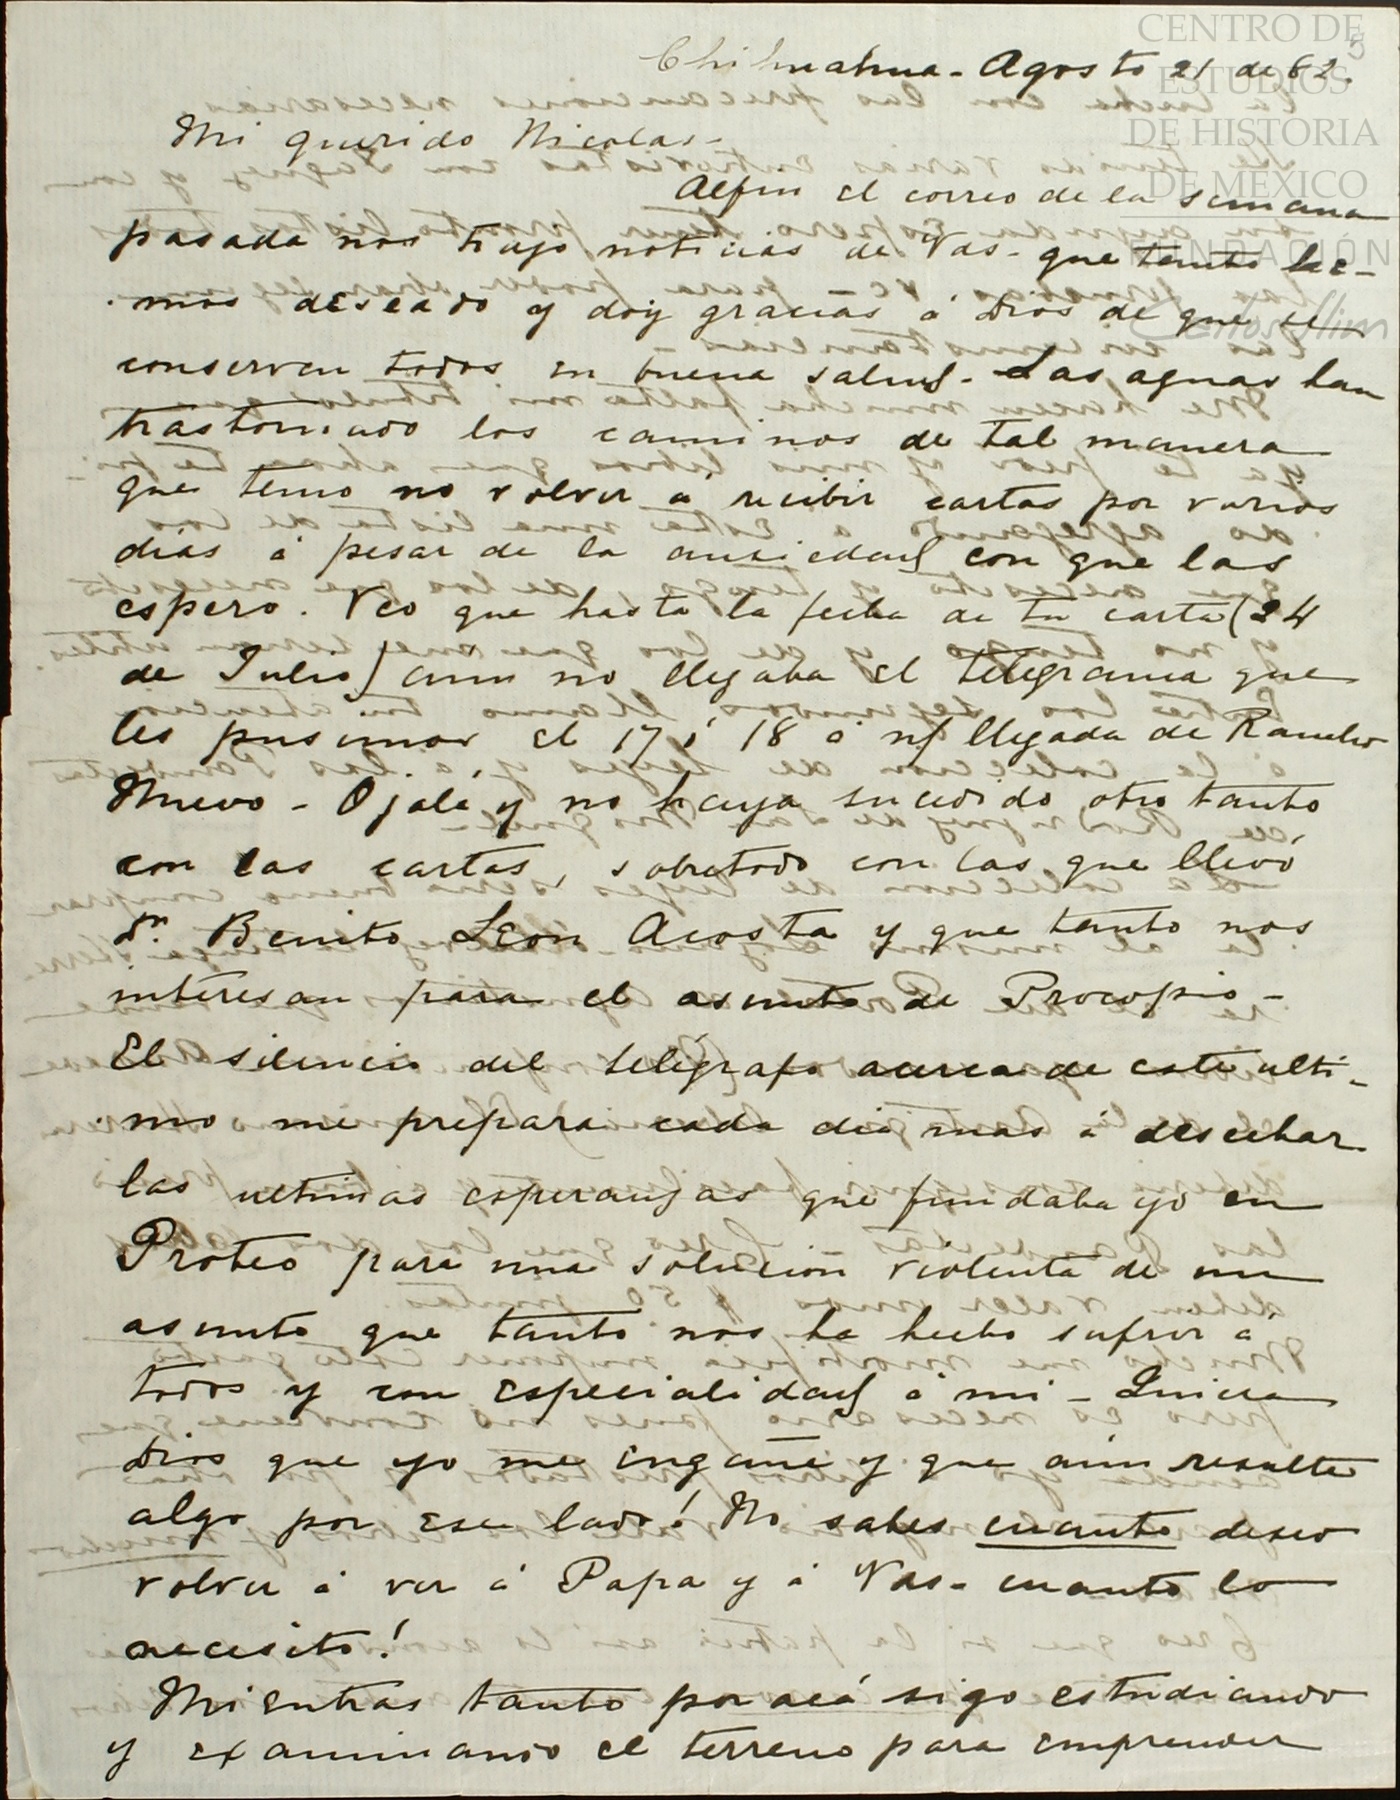 CENTRO DE
ESTUDIOS
DE HISTORIA
DE MÉXICO
FUNDACIÓN
Carlos Slim
Chihuahua - Agosto 21 de 62.
Mi querido Nicolas -
Alfin el correo de la semana
pasada nos trajo noticias de Vds - que tanto he-
mos deseado y doy gracias á Dios de que se
conserven todos en buena salud - Las aguas han
trastornado los caminos de tal manera
que temo no volver á recibir cartas por varios
dias á pesar de la ansiedad con que las
espero. Veo que hasta la fecha de tu carta (24
de Julio) aun no llegaba el telegrama que
les pusimos el 17 ó 18 á nf llegada de Rancho
Nuevo - Ojalá y no haya sucedido otro tanto
con las cartas, sobretodo con las que llevó
Dn. Benito Leon Acosta y que tanto nos
interesan para el asunto de Procopio -
El silencio del telégrafo acerca de este ulti-
mo me prepara cada dia mas á desechar
las ultimas esperanzas que fundaba yo en
Proteo para una solucion violenta de un
asunto que tanto nos ha hecho sufrir á
todos y con especialidad á mi - Quiera
Dios que yo me engañe y que aún resulte
algo por ese lado! No sabes cuanto deseo
volver á ver á Papa y á Vds - cuanto lo
necesito!
Mientras tanto por acá sigo estudiando
y examinando el terreno para emprender